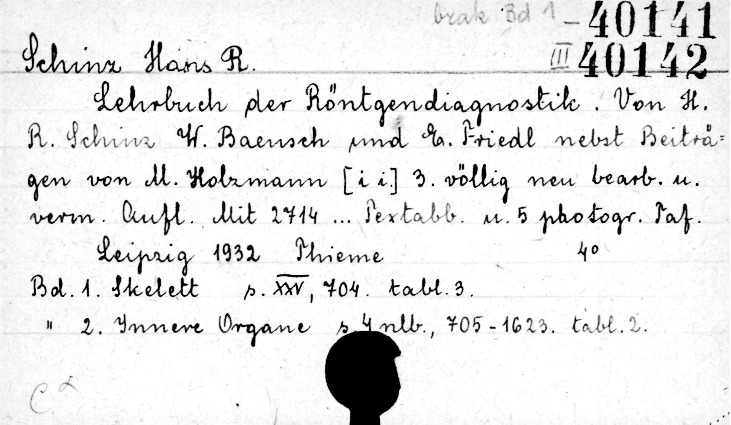 brak Bd 1 – 40141
III 40142
Schinz Hans R.
Lehrbuch der Röntgendiagnostik. Von H.
R. Schinz W. Baensch und E. Friedl nebst Beiträ=
gen von M. Holzmann [i i.] 3. völlig neu bearb. u.
verm. Aufl. Mit 2714 ... Textabb. u. 5 photogr. Taf.
Leipzig 1932 Thieme 4°
Bd. 1. Skelett s. XXV, 704. tabl. 3.
" 2. Innere Organe s. 4 nlb., 705-1623. tabl. 2.